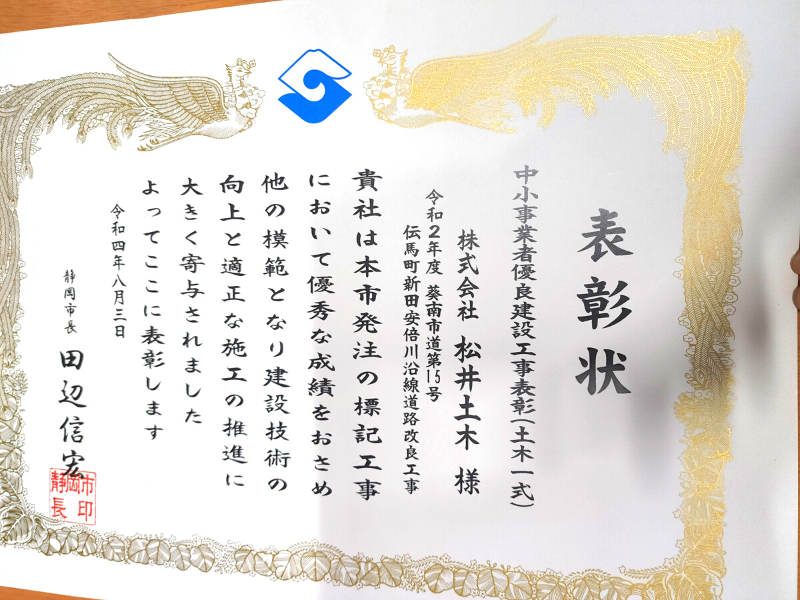 表彰状
中小事業者優良建設工事表彰(土木一式)
株式会社 松井土木 様
令和2年度 葵南市道第15号
伝馬町新田安倍川沿線道路改良工事
貴社は本市発注の標記工事
において優秀な成績をおさめ
他の模範となり建設技術の
向上と適正な施工の推進に
大きく寄与されました
よってここに表彰します
令和四年八月三日
静岡市長 田辺信宏
静岡市長印